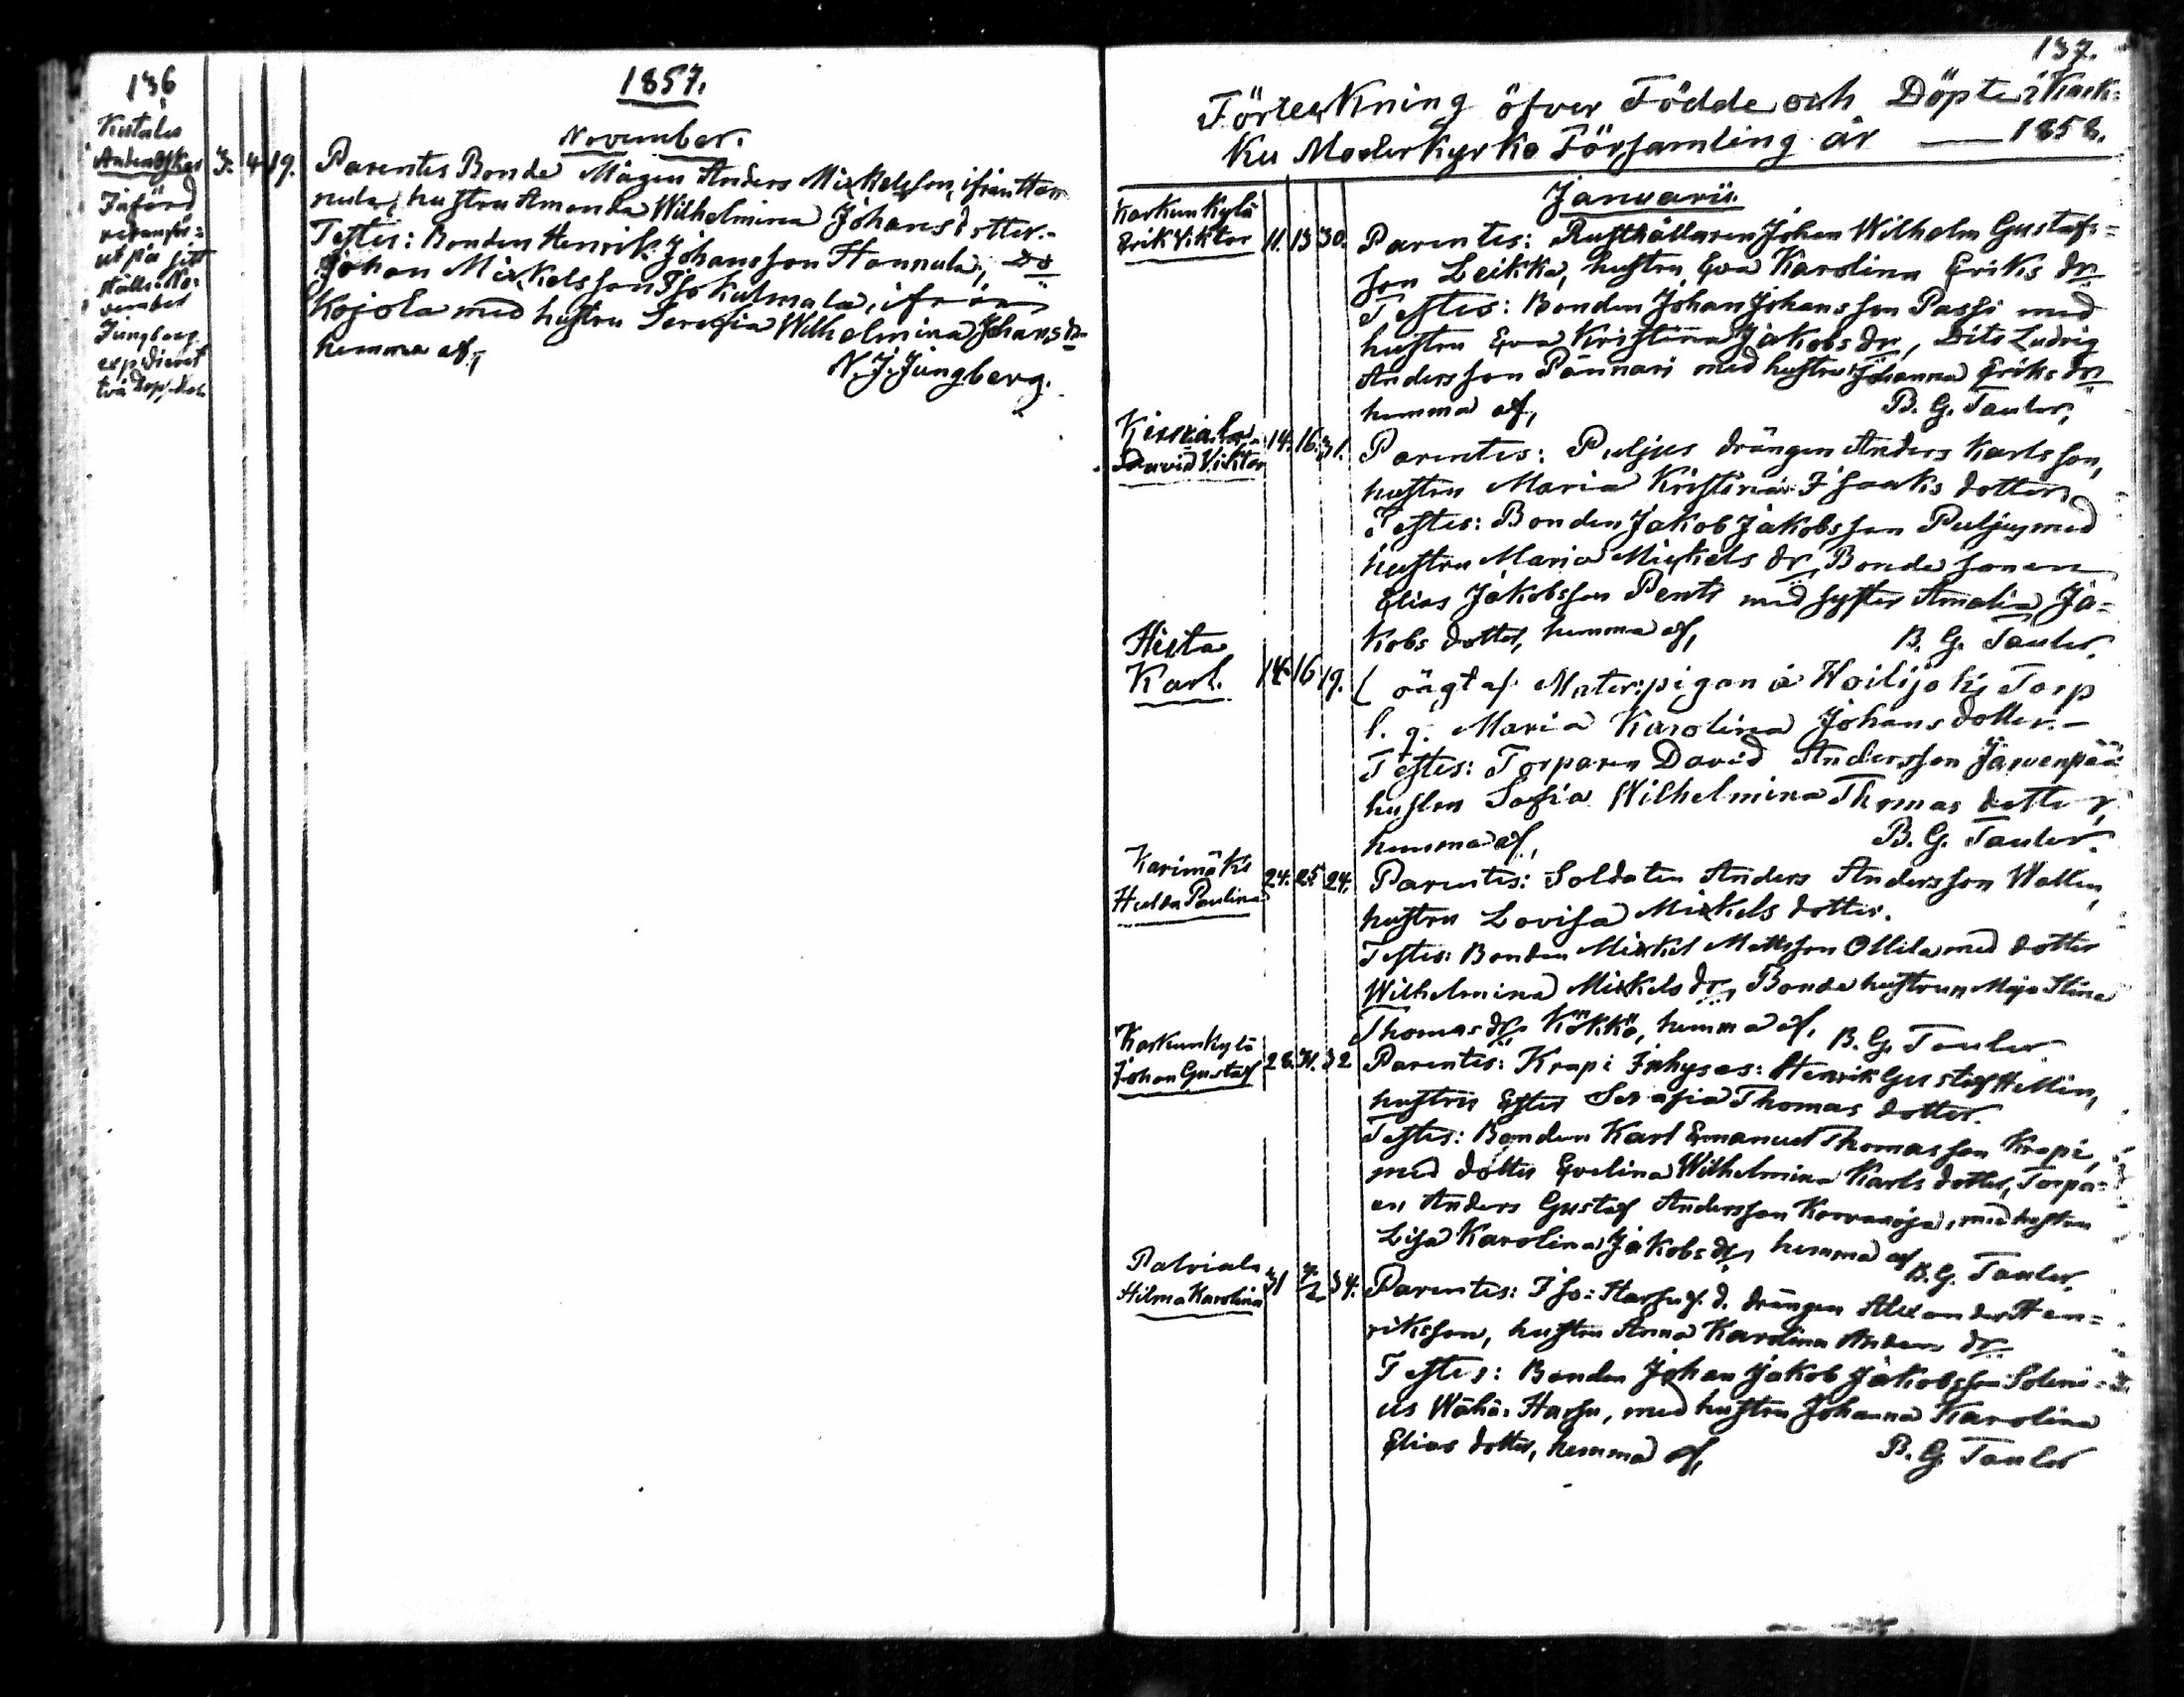 136
1857.
November.
Kutala
Anders Oskar 3. 4. 19.
Införd
ut på sitt
ställe No-
vember
Jungberg
expedieret
Parentes Bonde Mågen Anders Mickelsson, ifrån Han-
nula, hustru Amanda Wilhelmina Johansdotter.-
Testes: Bonden Henrik Johansson Hannula, Do
Johan Mickelsson Iso Kulmala, ifrån
Kojola med hustru Serafia Wilhelmina Johans dr
hemma af,
N. J. Jungberg.
137.
Förteckning öfver Födde och Döpte i Kark-
ku Moderkyrko Församling år — 1858.
Januarii.
Karkunkylä
Erik Viktor 11. 13 30.
Parentes: Rusthållaren Johan Wilhelm Gustafs-
son Leikka, hustru Eva Karolina Eriks dr
Testes: Bonden Johan Johansson Passi med
hustru Eva Kristina Jakobs dr, Dito Ludvig
Andersson Pännäri med hustru Johanna Eriks dr
hemma af, B. G. Tauler.
Kierikala
David Viktor 14. 16. 31.
Parentes: Puljus drängen Anders Karlsson,
hustru Maria Kristina Isaaks dotter,
Testes: Bonden Jakob Jakobsson Puljus med
hustru Maria Mickels dr, Bonde sonen
Elias Jakobsson Pentti med syster Amalia Ja-
kobs dotter, hemma af, B. G. Tauler.
Heita
Karl. 14. 16. 19.
( oägt af Mater: pigan å Hoilijoki Torp
l. q. Maria Karolina Johansdotter.-
Testes: Torparen David Andersson Järvenpää
hustru Sofia Wilhelmina Thomas dotter,
hemma af, B. G. Tauler.
Karimäki
Hulda Paulina 24. 25. 24.
Parentes: Soldaten Anders Andersson Wallen,
hustru Lovisa Mickels dotter.
Testes: Bonden Mickel Mattsson Ollila med dotter
Wilhelmina Mickels dr, Bonde hustrun Maja Stina
Thomas dr Kökkö, hemma af. B. G. Tauler.
Karkunkylä
Johan Gustaf 28. 31. 32
Parentes: Krapi Inhyses: Henrik Gustaf Hellin,
hustru Ester Serafia Thomas dotter.
Testes: Bonden Karl Emanuel Thomasson Krapi,
med dotter Evelina Wilhelmina Karls dotter, Torpa-
en Anders Gustaf Andersson Korvanoja, med hustru
Lisa Karolina Jakobs dr, hemma af B. G. Tauler.
Palviala
Hilma Karolina 31 7/2 34.
Parentes: Iso-Harsu f. d. drängen Alexander Hen-
riksson, hustru Anna Karolina Anders dr
Testes: Bonden Johan Jakob Jakobsson Soleni-
us Wähä-Harsu, med hustru Johanna Karolina
Elias dotter, hemma af, B. G. Tauler